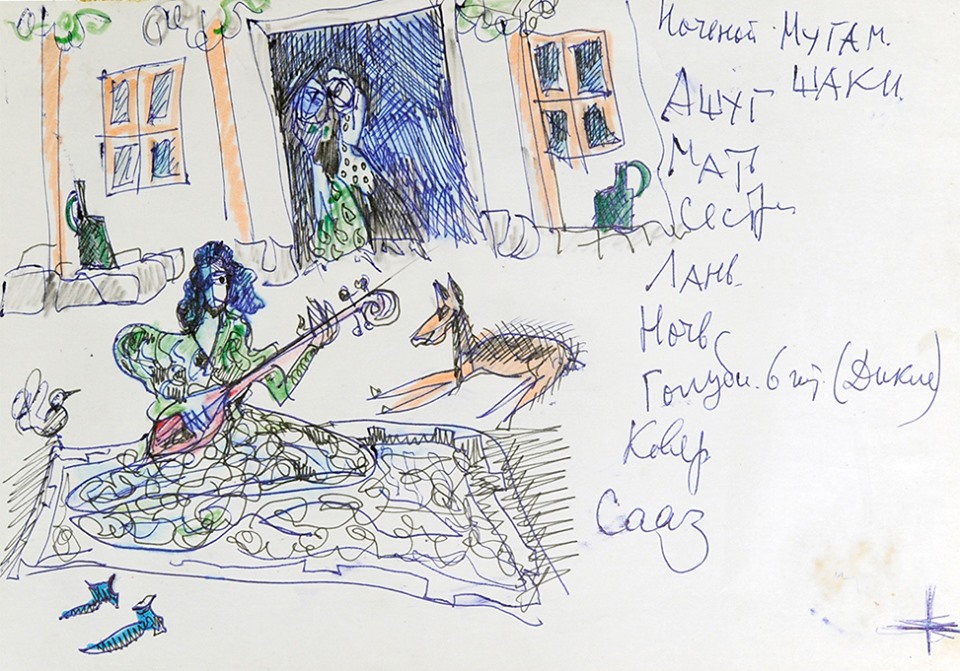 Ночной Мугам.
ШАКИ.
АШУГ
Мать
Сестры
Лань
Ночь
Голуби. 6 шт. (Дикие)
Ковер
Сааз